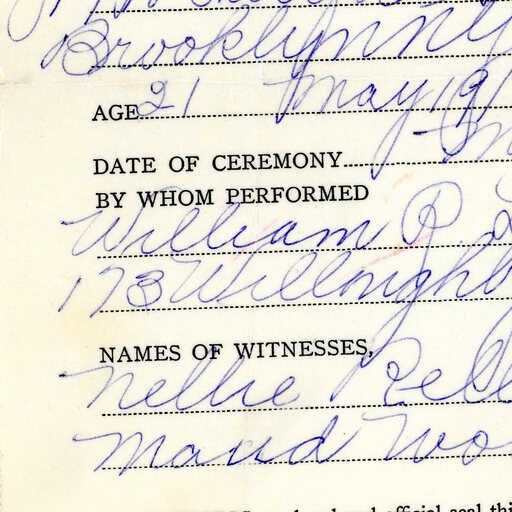 Brooklyn ny
AGE 21 May 191
DATE OF CEREMONY
BY WHOM PERFORMED
William R.
173 Willoughb
NAMES OF WITNESSES,
Nellie Pell
Maud Wo
official seal thi